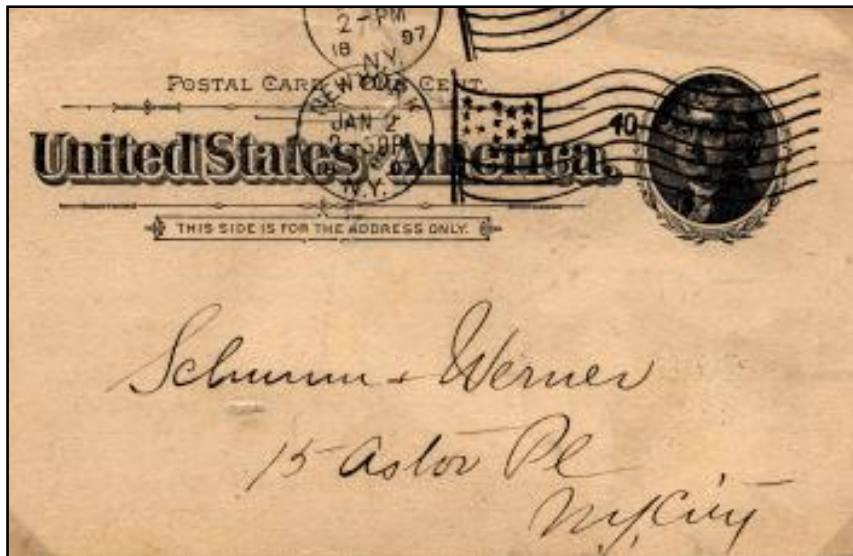 2-PM
18 97
N.Y.
POSTAL CARD ONE CENT.
NEW YORK
JAN 2
N.Y.
40
United States America.
THIS SIDE IS FOR THE ADDRESS ONLY.
Werner
15 Astor Pl
N.Y. City